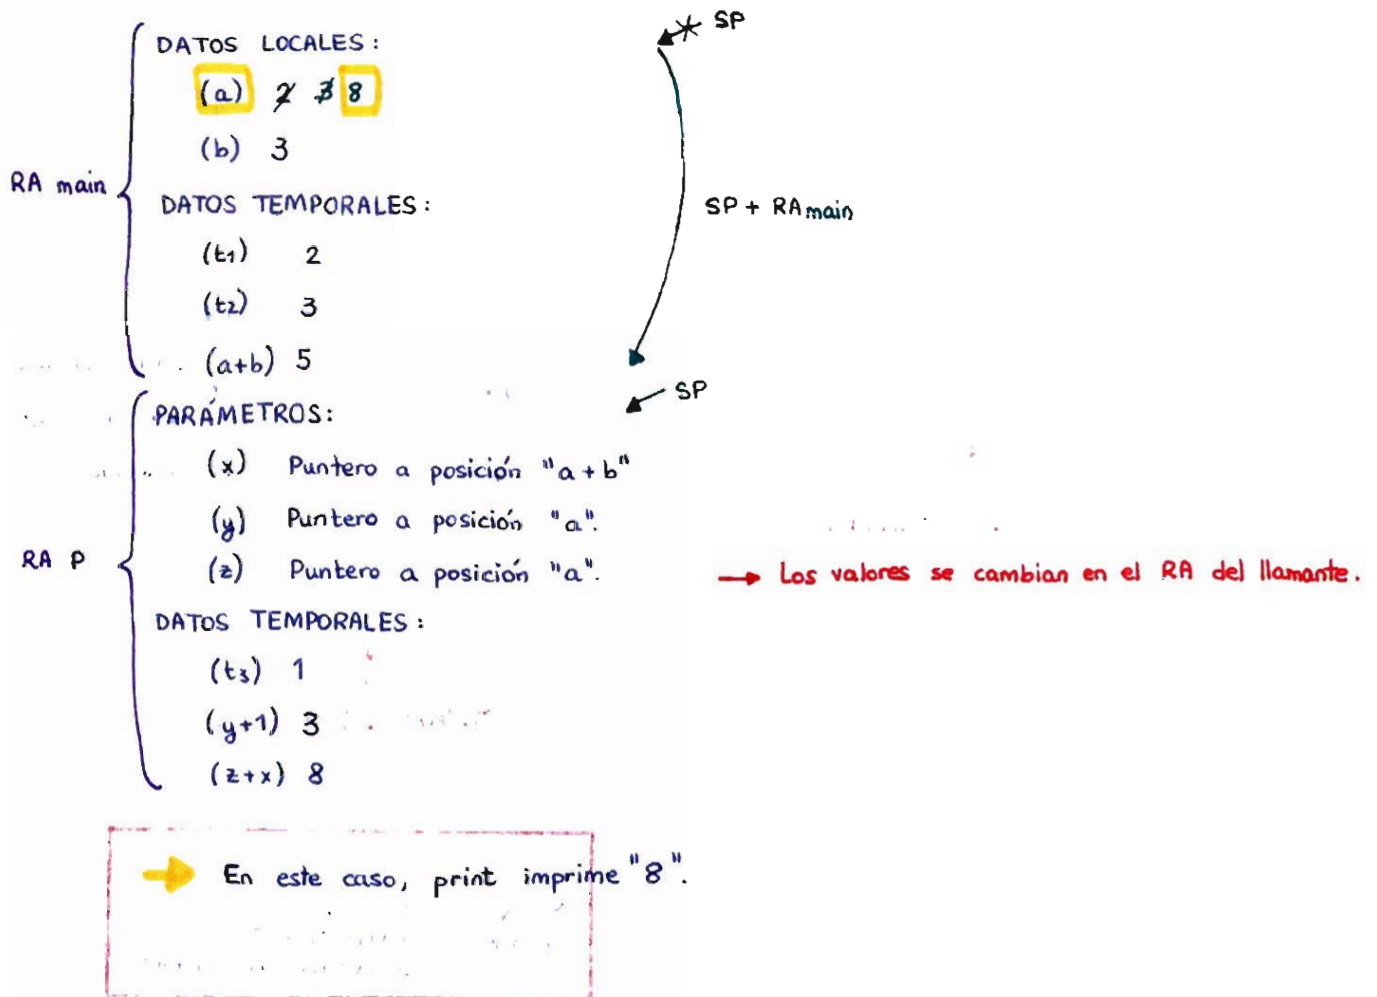 SP
DATOS LOCALES:
(a) 2 3 8
(b) 3
RA main
DATOS TEMPORALES:
SP + RAmain
(t1) 2
(t2) 3
(a+b) 5
SP
PARÁMETROS:
(x) Puntero a posición "a + b"
(y) Puntero a posición "a".
RA P
(z) Puntero a posición "a".
→ Los valores se cambian en el RA del llamante.
DATOS TEMPORALES:
(t3) 1
(y+1) 3
(z+x) 8
→ En este caso, print imprime "8".